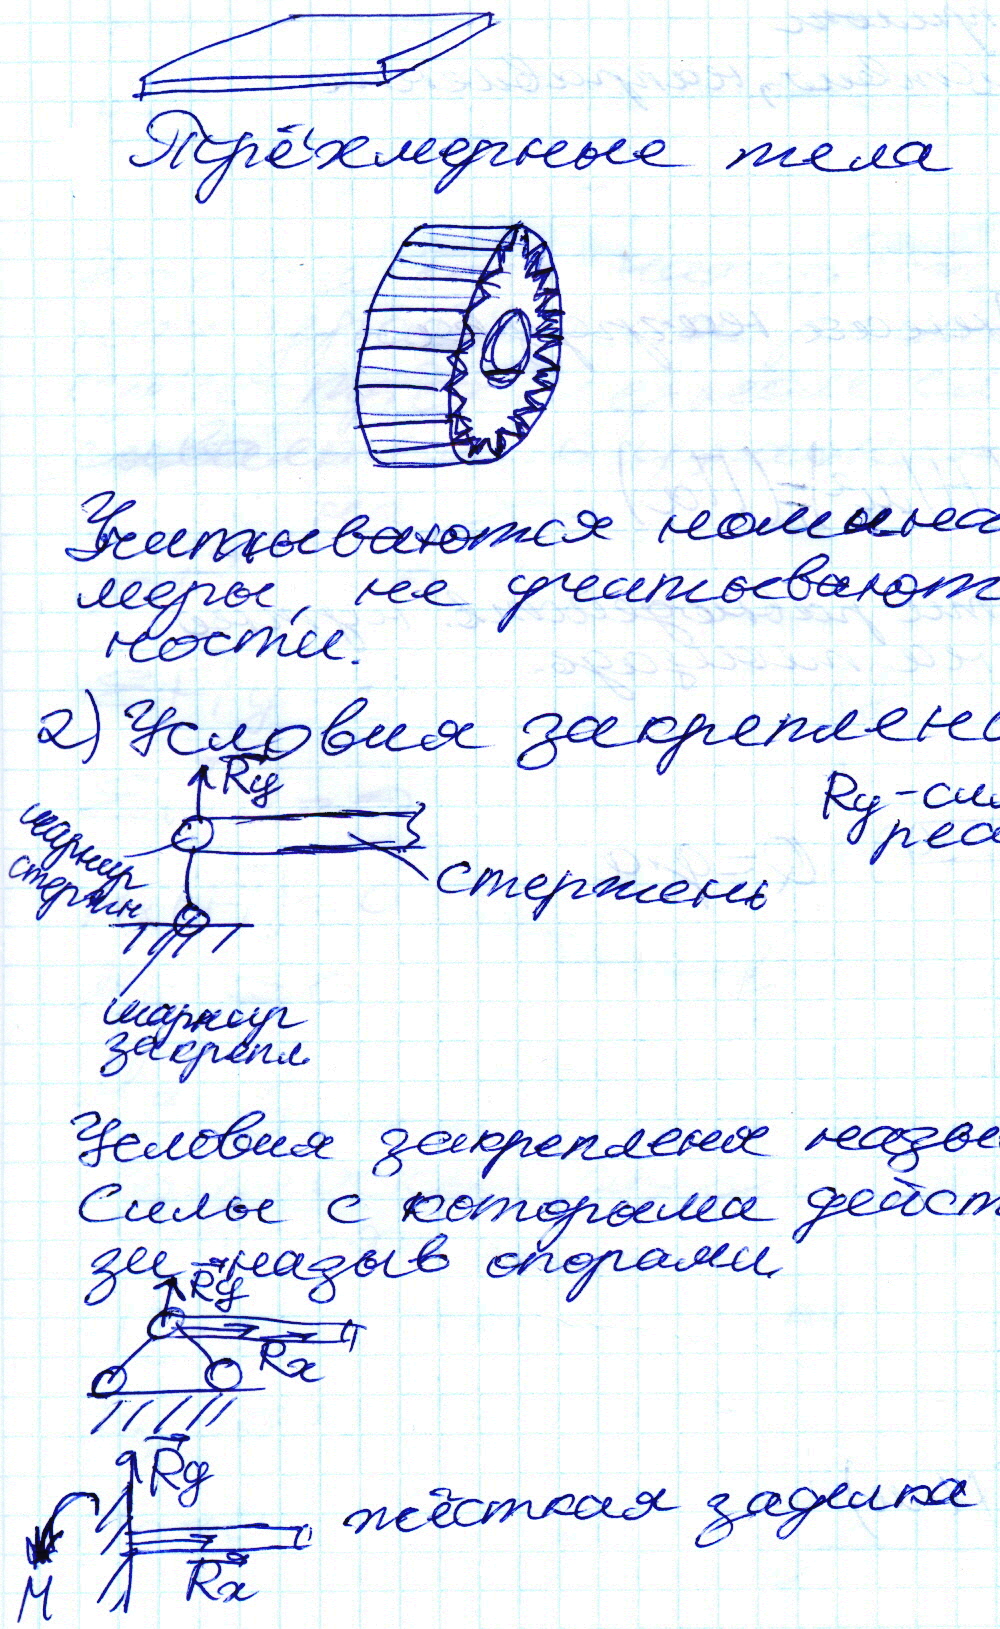 Трёхмерные тела
Учитываются номина
меры, не учитывают
ности.
2) Условия закреплени
Ry
Ry - сил
реа
шарнир
стержн
стержень
шарнир
закрепл.
Условия закрепленя назы
Силы с которыми дейст
зи назыв опорами.
Ry
Rx
Ry
жёсткая заделка
Rx
M